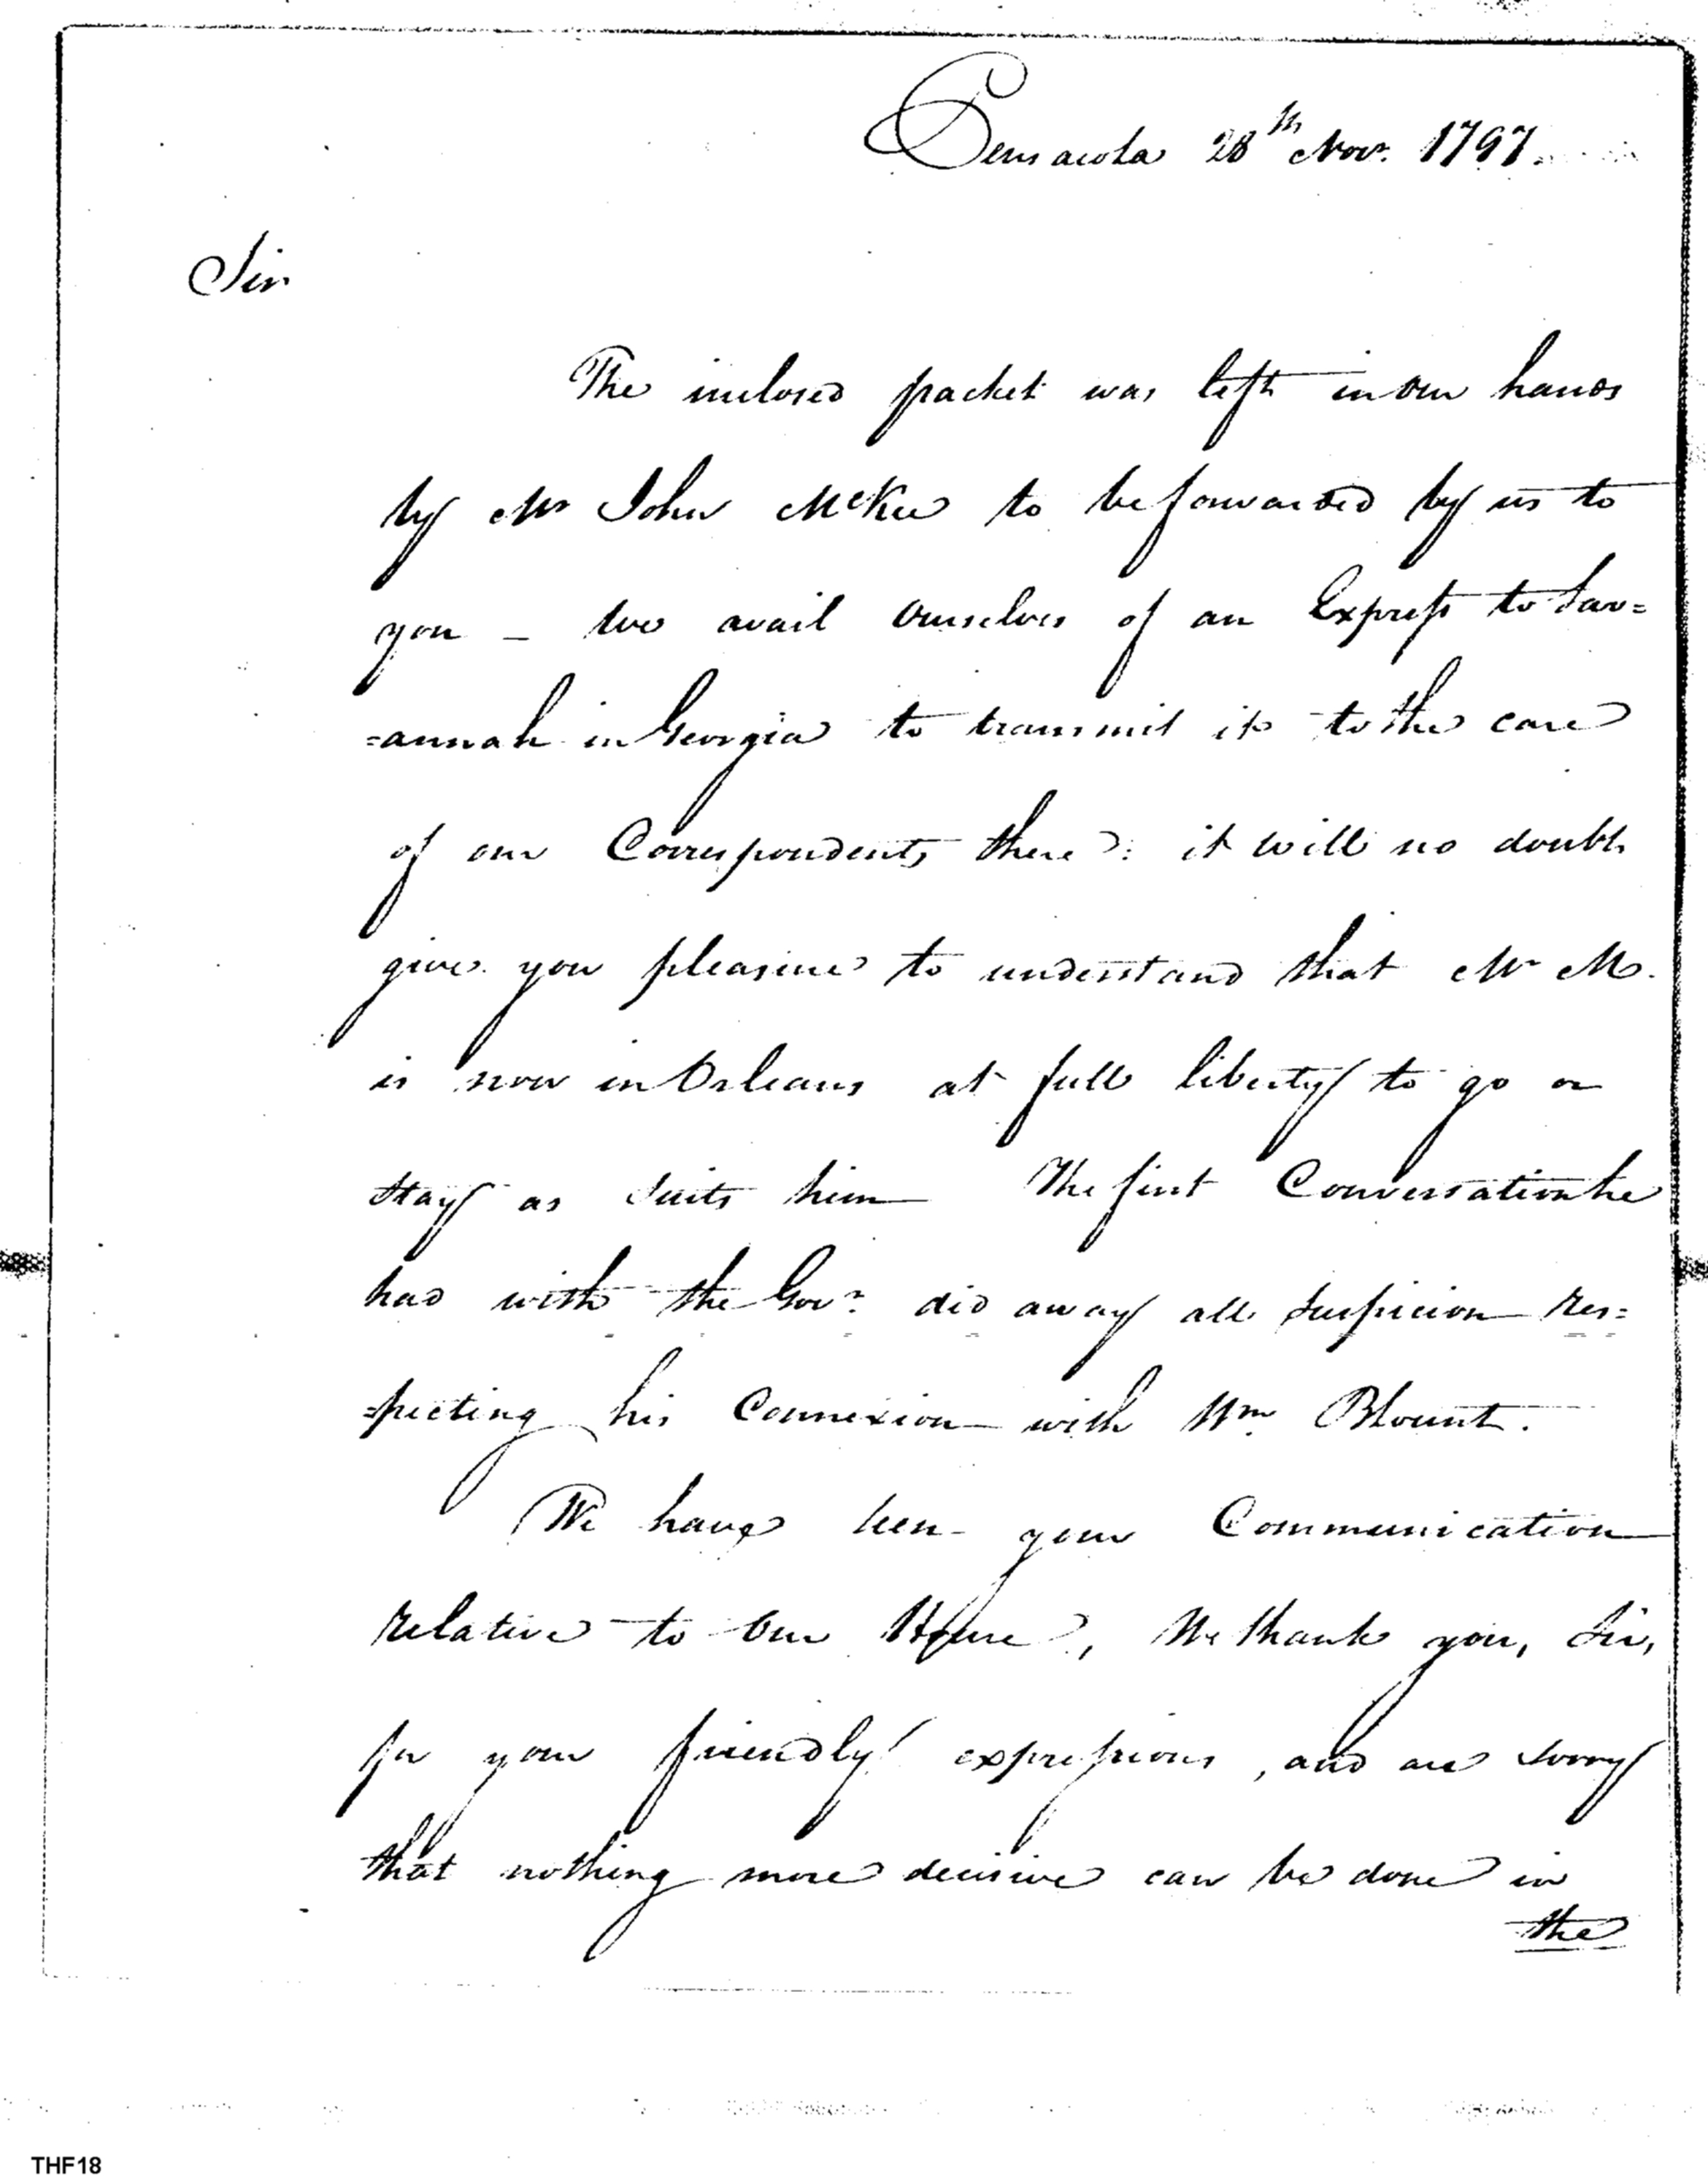 Pensacola 28th Novr. 1797.
Sir
The inclosed packet was left in our hands
by Mr John McKee to be forwarded by us to
you – We avail Ourselves of an Express to Sav=
=annah in Georgia to transmit it to the care
of our Correspondents there: it will no doubt
give you pleasure to understand that Mr M.
is now in Orleans at full liberty to go or
stay as suits him The first Conversation he
had with the Govr. did away all suspicion res=
=pecting his Connexion with Wm. Blount.
We have seen your Communication
relative to our House, We thank you, Sir,
for your friendly expressions, and are sorry
that nothing more decisive can be done in
the
THF18